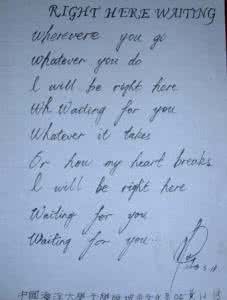 RIGHT HERE WAITING
Wherevere you go
Whatever you do
I will be right here
Wh Waiting for you
Whatever it takes
Or how my heart breaks
I will be right here
Waiting for you
Waiting for you
中國海洋大學